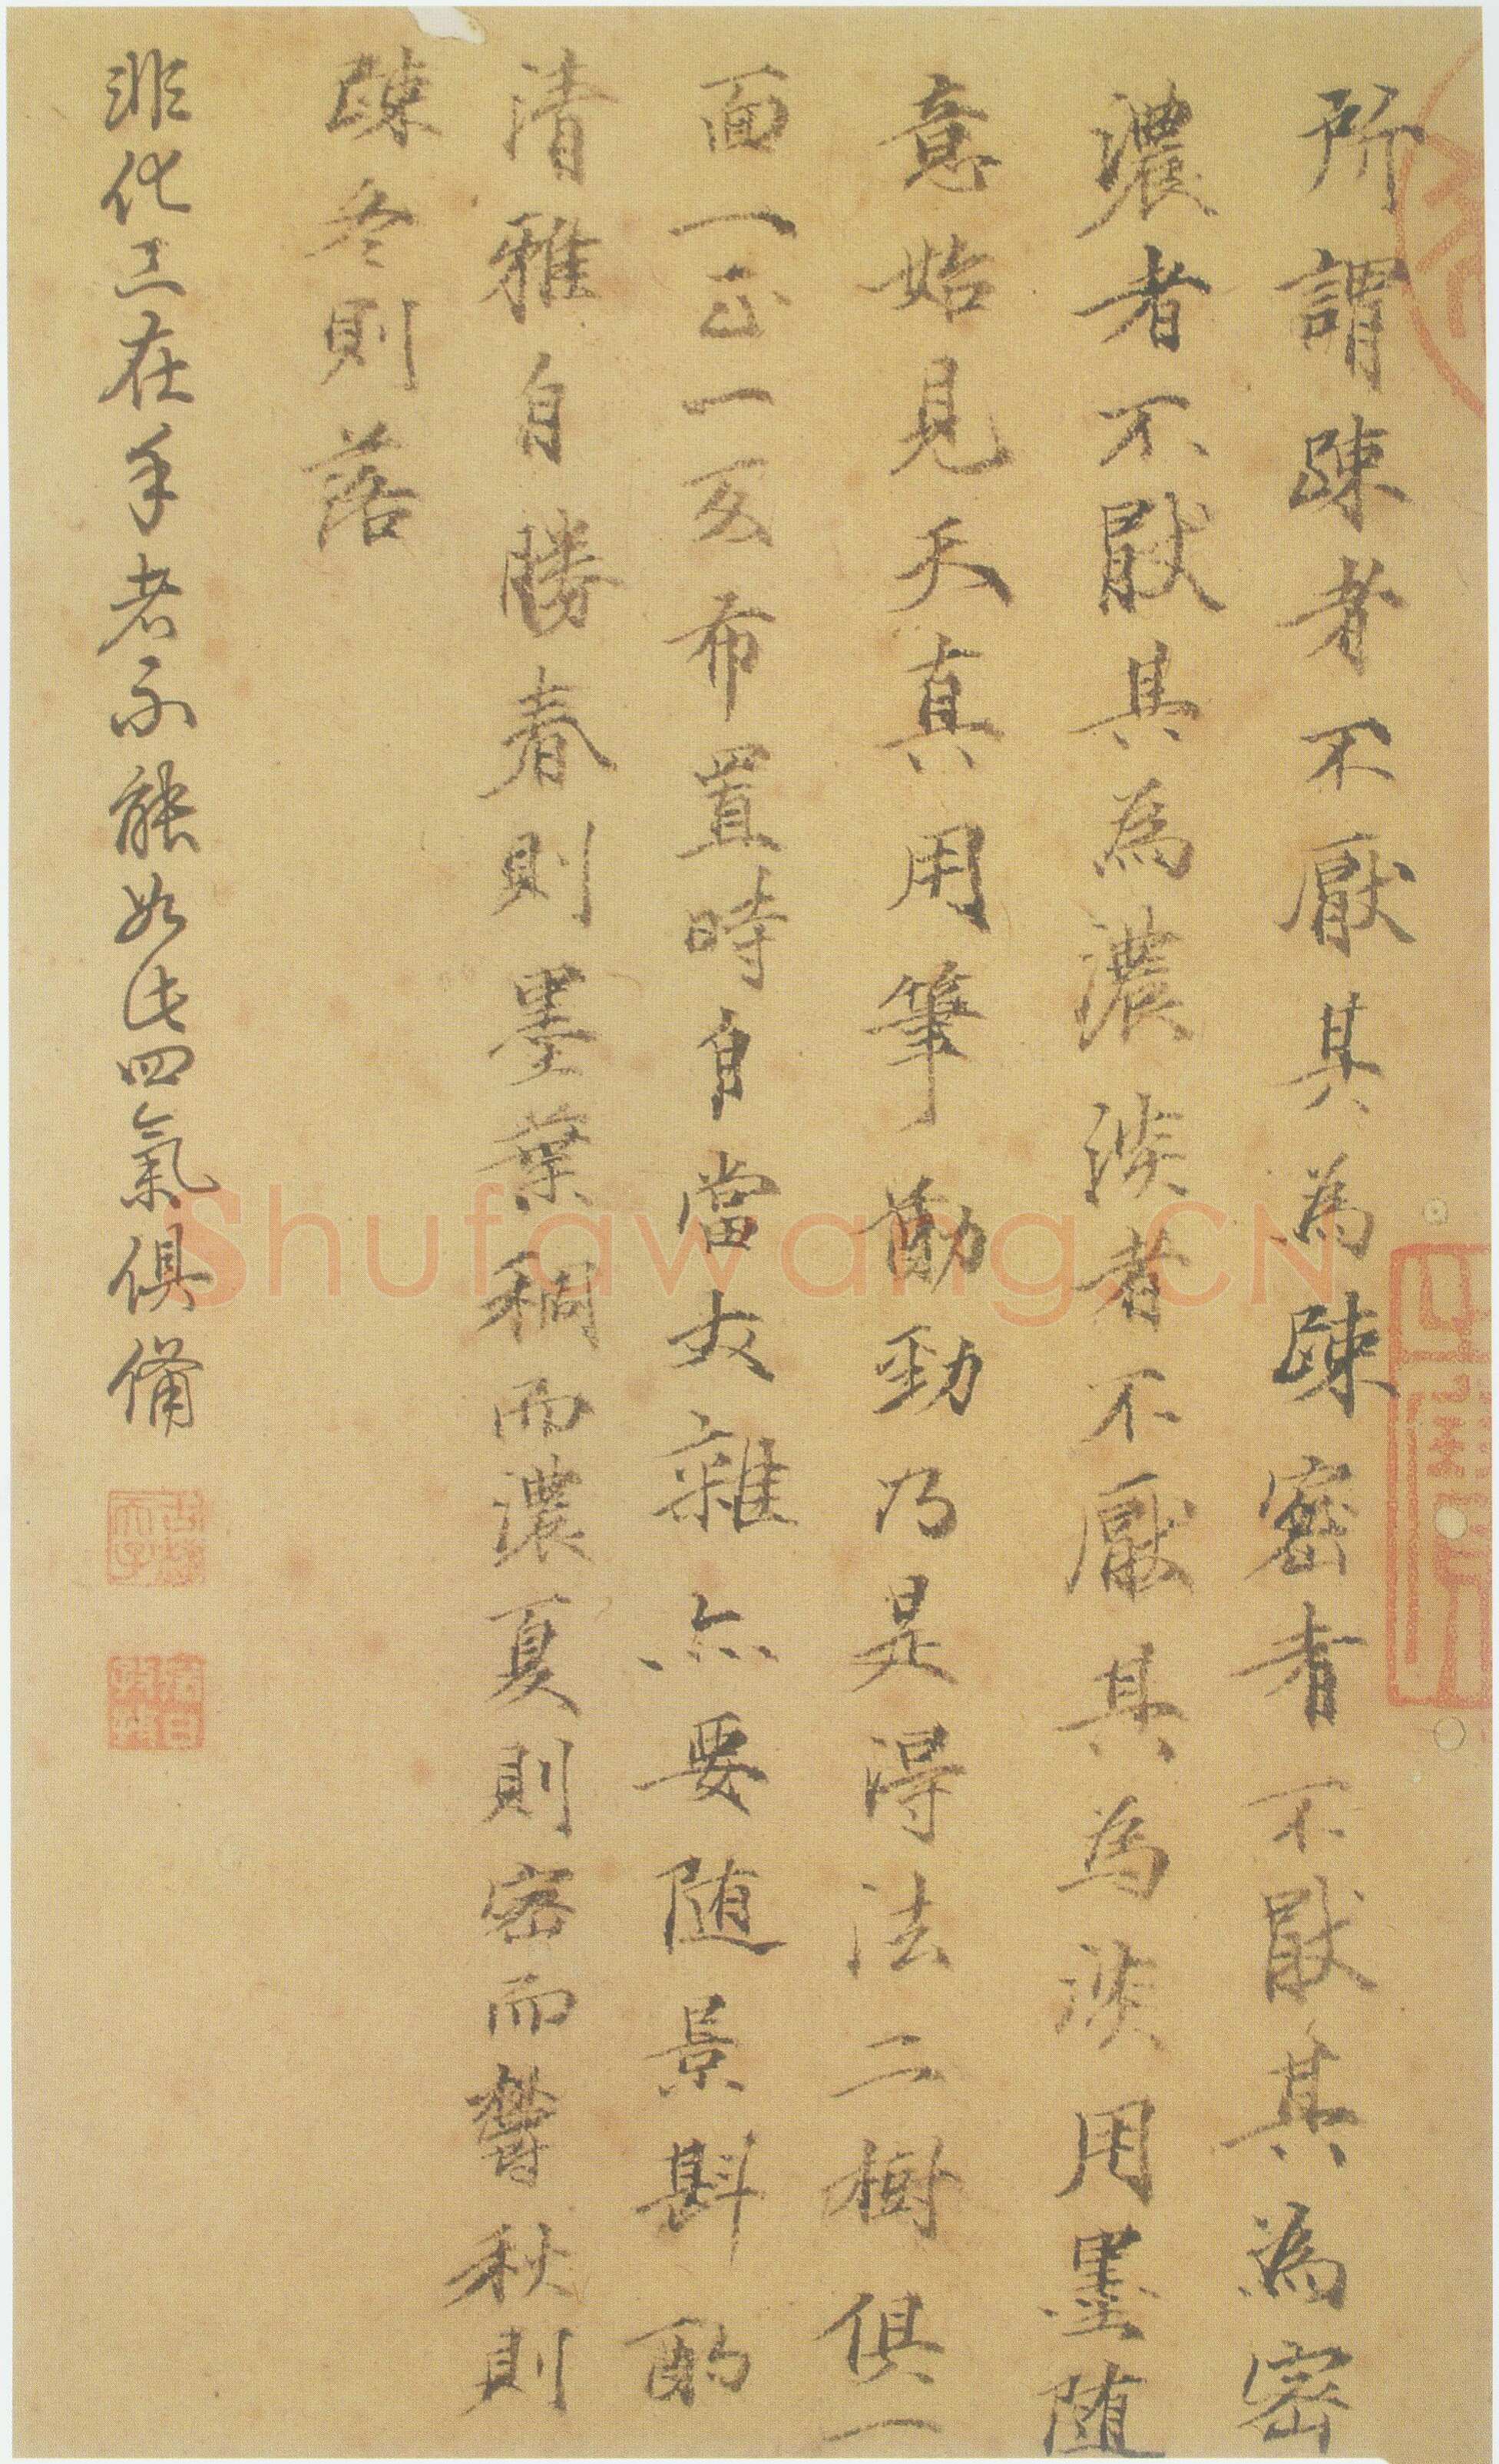 所謂踈者不厭其為踈密者不猒其為密
濃者不猒其為濃淡者不厭其為淡用墨随
意始見天真用筆勁乃是得法二樹俱一
面一正一反布置時自當雜亦要随景斟酌
清雅自勝春則墨葉稠而濃夏則密而鬱秋則
踈冬則落
非化工在手者不能如此四氣俱備
Shufawang.CN